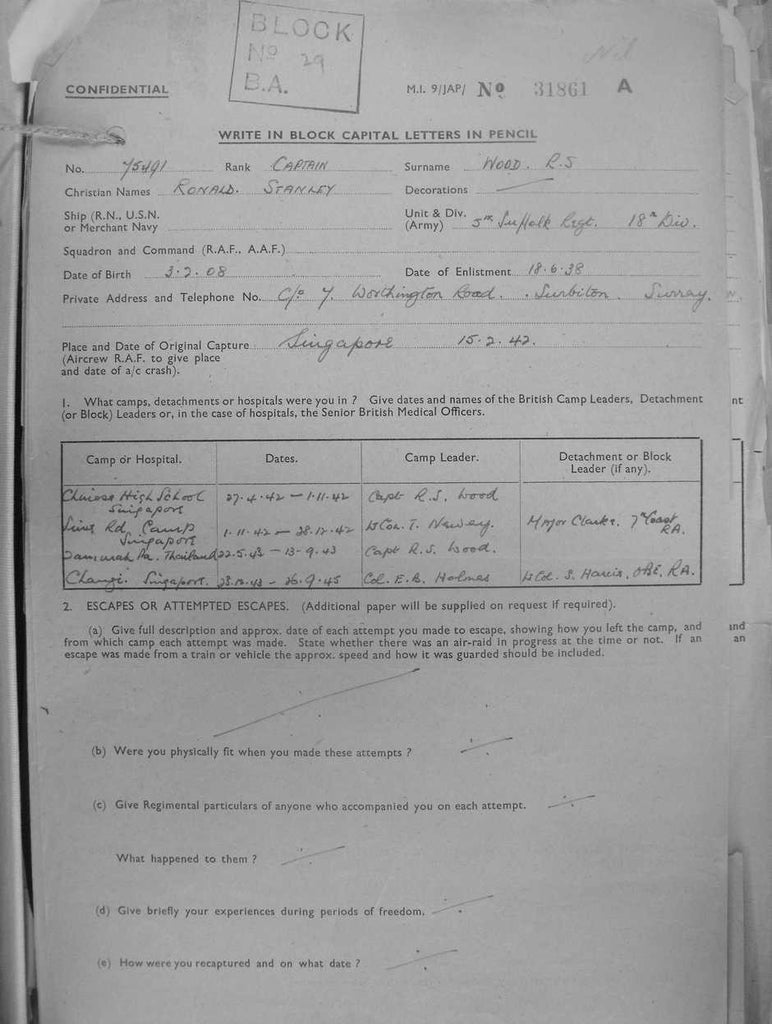 BLOCK
Nº 29
B.A.
Nil
CONFIDENTIAL
M.I. 9/JAP/ Nº 31861 A
WRITE IN BLOCK CAPITAL LETTERS IN PENCIL
No. 75491 Rank CAPTAIN Surname WOOD. R.S
Christian Names RONALD. STANLEY Decorations
Ship (R.N., U.S.N. or Merchant Navy
Unit & Div. (Army) 5th Suffolk Regt. 18th Div.
Squadron and Command (R.A.F., A.A.F.)
Date of Birth 3.2.08 Date of Enlistment 18.6.38
Private Address and Telephone No. C/o 7. Worthington Road. Surbiton. Surrey.
Place and Date of Original Capture Singapore 15.2.42.
(Aircrew R.A.F. to give place
and date of a/c crash).
1. What camps, detachments or hospitals were you in ? Give dates and names of the British Camp Leaders, Detachment
(or Block) Leaders or, in the case of hospitals, the Senior British Medical Officers.
Camp or Hospital. Dates. Camp Leader. Detachment or Block Leader (if any).
Chinese High School Singapore 27.4.42 — 1.11.42 Capt R.S. Wood
Sime Rd. Camp Singapore 1.11.42 — 28.12.42 Lt Col. T. Newey. Major Clarke. 7th Coast RA.
Thailand 22.5.43 — 13.9.43 Capt R.S. Wood.
Changi. Singapore. 28.12.43 — 26.9.45 Col. E.B. Holmes Lt Col. S. Harris, OBE, RA.
2. ESCAPES OR ATTEMPTED ESCAPES. (Additional paper will be supplied on request if required).
(a) Give full description and approx. date of each attempt you made to escape, showing how you left the camp, and
from which camp each attempt was made. State whether there was an air-raid in progress at the time or not. If an
escape was made from a train or vehicle the approx. speed and how it was guarded should be included.
(b) Were you physically fit when you made these attempts ?
(c) Give Regimental particulars of anyone who accompanied you on each attempt.
What happened to them ?
(d) Give briefly your experiences during periods of freedom.
(e) How were you recaptured and on what date ?
nt
and
an